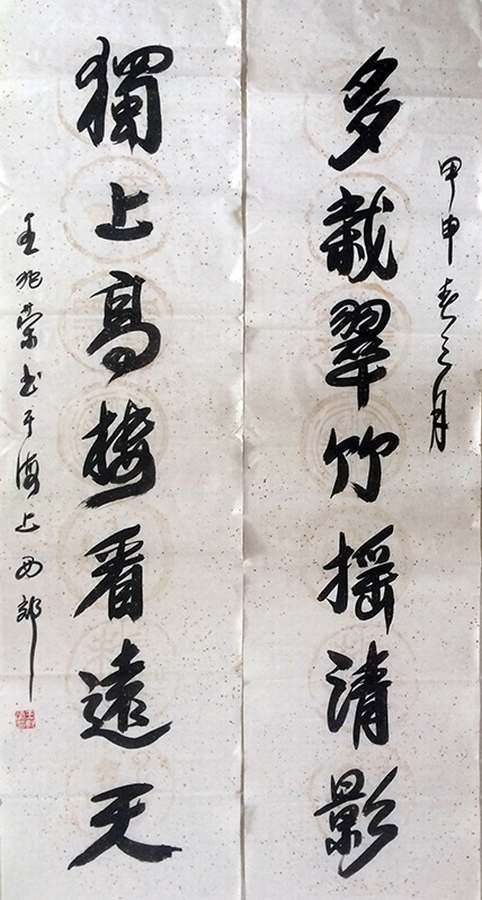 甲申春三月
多栽翠竹摇清影
獨上高樓看遠天
王兆荣书于海上西郊